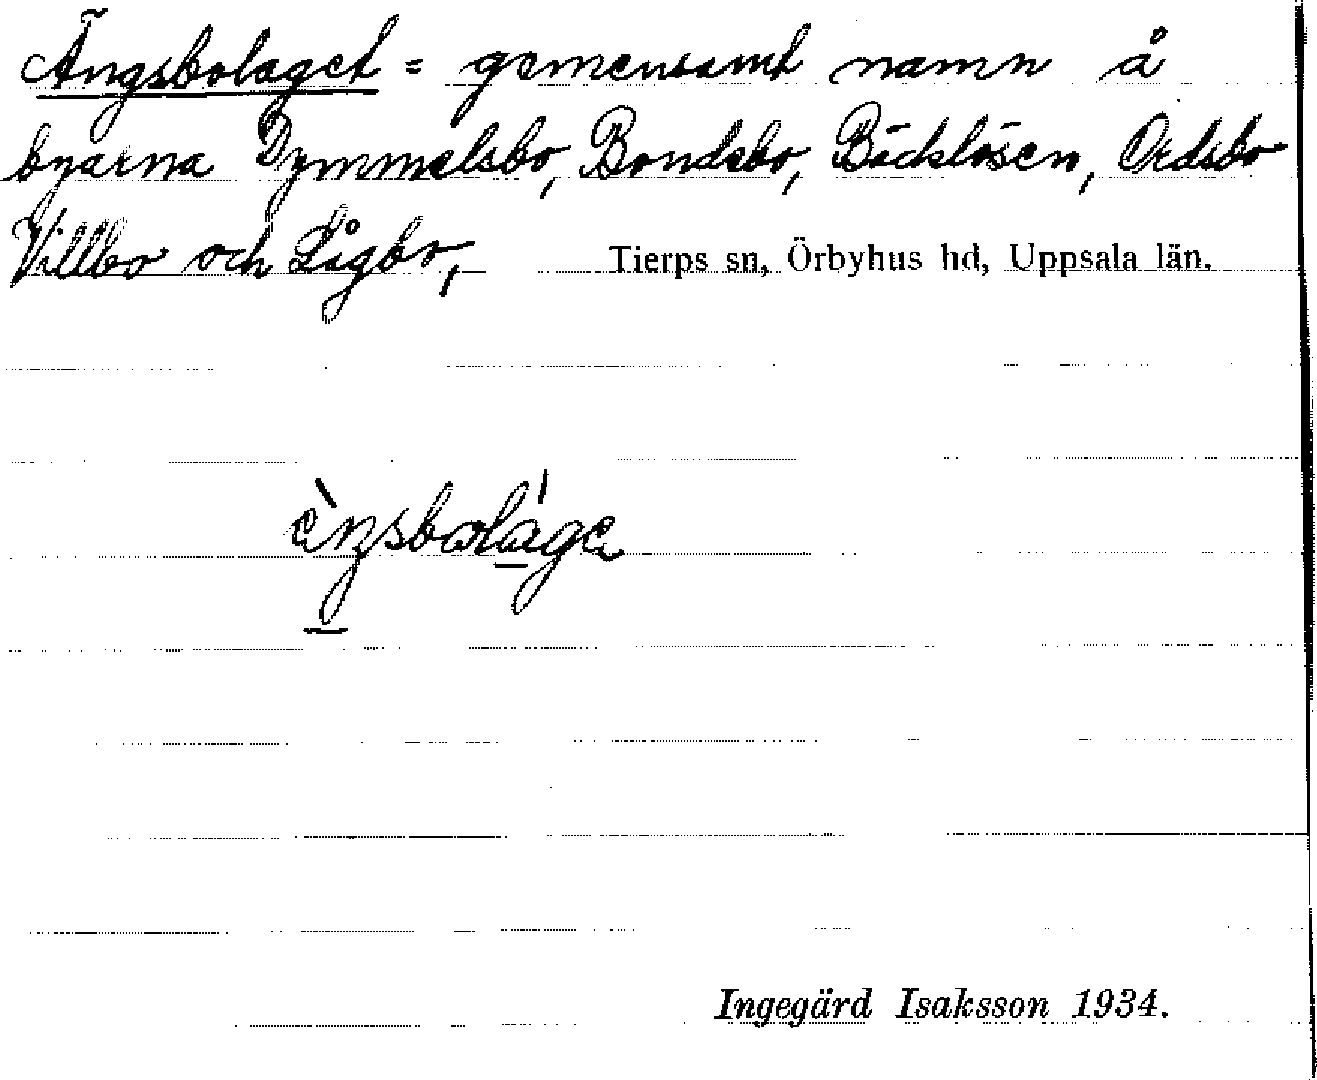 Ängsbolaget = gemensamt namn å
byarna Dymmelsbo, Bondsbo, Bäckslösen, Ordsbo
Villbo och Lågbo, Tierps sn, Örbyhus hd, Uppsala län.
Ingegärd Isaksson 1934.